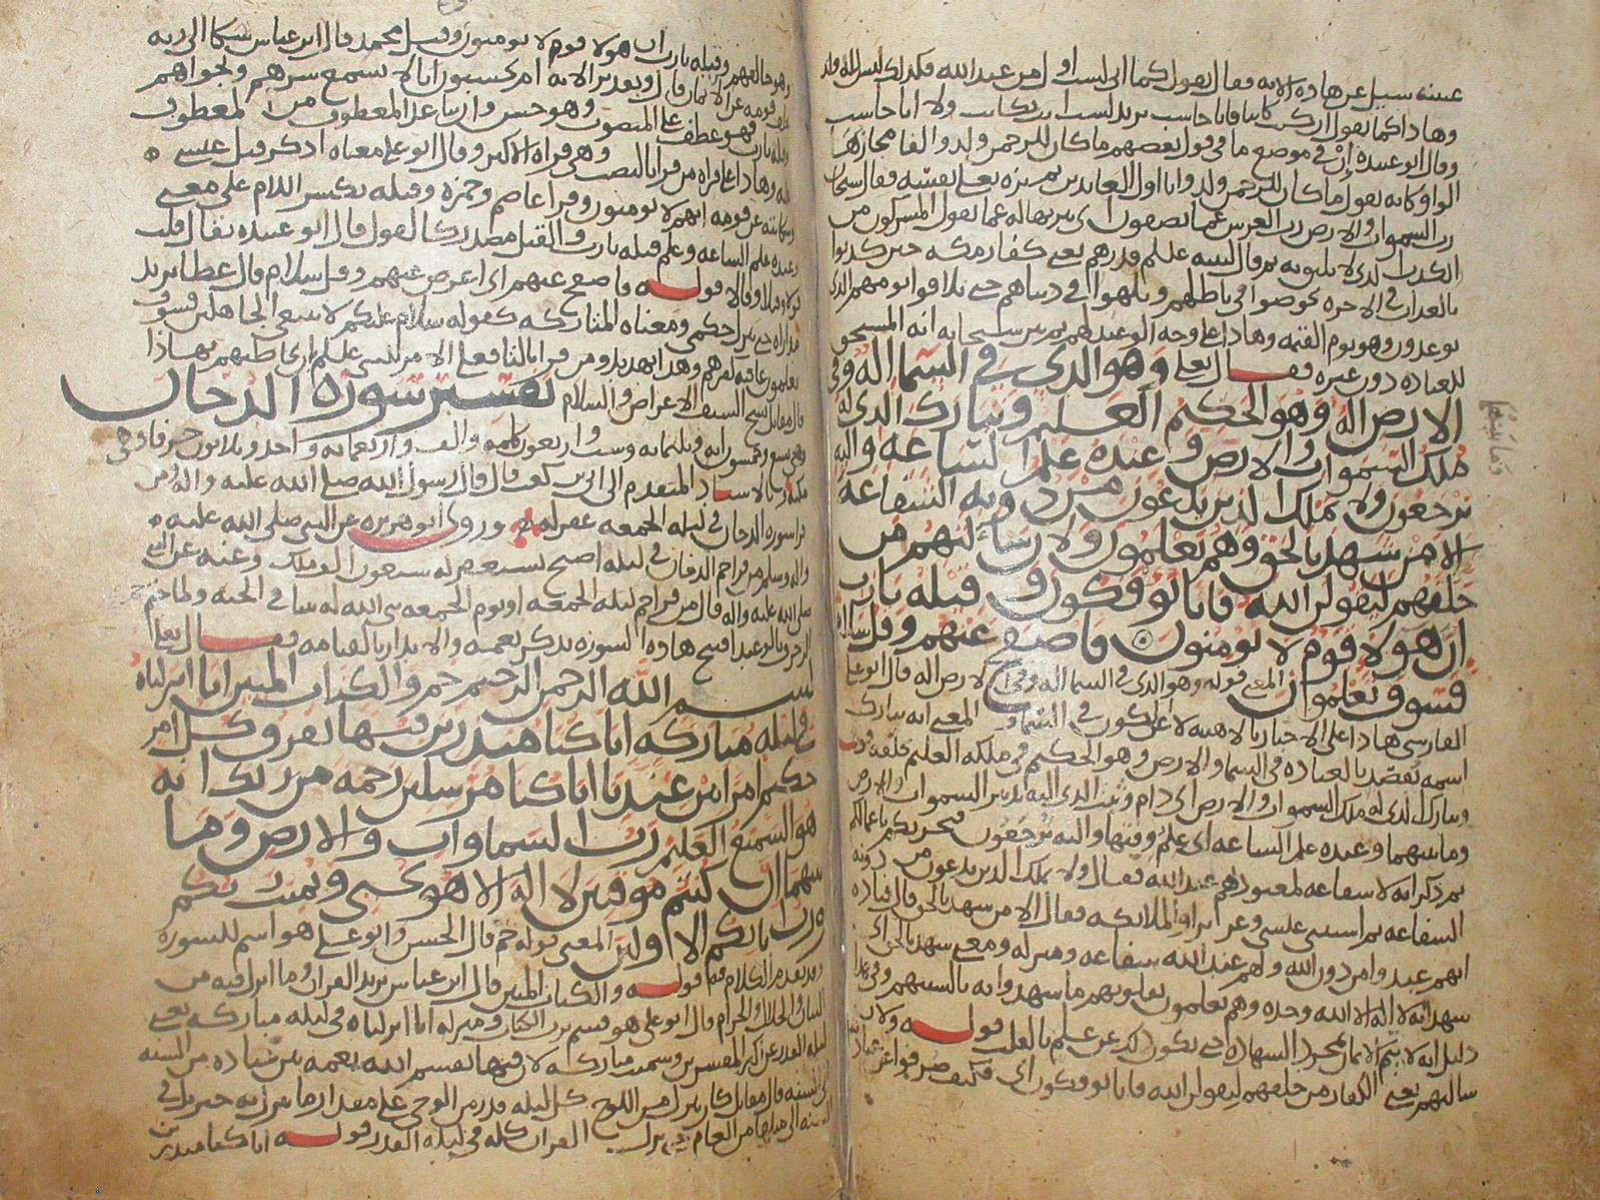 عيينه سيل عن هاذه الايه فقال يقول كما اني لست اول من عبد الله فكذلك ليس لله ولد
وهاذا كما يقول ان كنت كاتبا فانا حاسب يريد لست انت بكاتب ولا انا حاسب
وقال ابو عبيده إن في موضع ما في قول بعضهم ما كان للرحمن ولد والفا مجازها
الواو كانه يقول ما كان للرحمن ولد وانا اول العابدين ثم نزه تعلى نفسه فقال سبحان
رب السموات والارض رب العرش عما يصفون اي تنزيها له عما يقول المشركون من
الكذب
بالعذاب في الاخره يخوضوا في باطلهم ويلهوا في دنياهم حتى يلاقوا يومهم الذي
يوعدون وهو يوم القيمه وهاذا على وجه الوعيد لهم ثم بين سبحانه انه المستحق
للعباده دون غيره فقال تعلى وهو الذي في السما اله وفي
الارض اله وهو الحكيم العليم وتبارك الذي له
ملك السموات والارض وعنده علم الساعه واليه
ترجعون ولا يملك الذين يدعون من دونه الشفاعه
الا من شهد بالحق وهم يعلمون ولان سألتهم من
خلقهم ليقولن الله فانا يوفكون وقيله يارب
ان هولا قوم لا يومنون فاصفح عنهم وقل سلام
فسوف تعلمون المعنى قوله وهو الذي في السما اله وفي الارض اله قال ابو على
الفارسي هاذا على الاخبار بالاهيه لا على الكون في السما المعنى انه تبارك
اسمه يقصد بالعباده في السما والارض وهو الحكيم في ملكه العليم بخلقه
وتبارك الذي له ملك السموات والارض اي دام وثبت الذي اليه تدبير السموات والارض
وما بينهما وعنده علم الساعه اي علم وقتها واليه ترجعون فيجزيكم باعمالكم
ثم ذكر انه لا شفاعه لمعبودهم عند الله فقال ولا يملك الذين يدعون من دونه
الشفاعه ثم استثنى عيسى وعزيرا والملائكه فقال الا من شهد بالحق قال قتاده
انهم عبدوا من دون الله ولهم عند الله شفاعه ومنزله ومعنى شهد بالحق اي
شهد انه لا اله الا الله وحده وهم يعلمون بقلوبهم ما شهدوا به بالسنتهم وفي هاذا
دليل انه لا يتم الايمان بمجرد الشهاده حتى يكون ذلك عن علم بالقلب قوله ولان
سالتهم يعني الكفار من خلقهم ليقولن الله فانا يوفكون اي فكيف صرفوا عن عباده
وهو خالقهم وقيله يارب ان هولا قوم لا يومنون وقيل محمد قال ابن عباس شكا الى ربه
قومه عن الايمان
فهو عطف على المنصوب وهو حسن وان تباعد المعطوف من المعطوف
وهاذا على قراه من قرا بالنصب وهي قراه الاكثر وقال ابو على معناه اذكر قيل عيسى
قومه انهم لا يومنون وقرا عاصم وحمزه وقيله بكسر اللام على معنى
وعنده علم الساعه وعلم قيله يارب والقيل مصدر كالقول قال ابو عبيده يقال قلت
قولا وقيلا وقالا قوله فاصفح عنهم اي اعرض عنهم وقل سلام قال عطا يريد
حتى ينزل حكمي ومعناه المتاركه كقوله سلام عليكم لا نبتغي الجاهلين فسوف
يعلمون عاقبه كفرهم وهذا تهديد ومن قرا بالتا فعلى الامر للنبي عليه السلم ان يخاطبهم بهاذا
قال مقاتل نسخ السيف الاعراض والسلام تفسير سورة الدخان
وهي تسع وخمسون ايه وثلثمايه وست واربعون كلمه والف واربعمايه واحد وثلاثون حرفا وهي
مكيه وبالاسناد المتقدم الى ابي بن كعب قال قال رسول الله صلى الله عليه واله من
قرا سورة الدخان في ليلة الجمعه غفر له وروى ابو هريره عن النبي صلى الله عليه
واله وسلم من قرا حم الدخان في ليله اصبح يستغفر له سبعون الف ملك وعنه عن النبي
صلى الله عليه واله قال من قرا حم ليلة الجمعه او يوم الجمعه بنى الله له بيتا في الجنه ولما ختم
الزخرف بالوعيد افتتح هاذه السورة بذكر نعمه والانذار بالقيامه فقال تعلى
بسم الله الرحمن الرحيم حم والكتاب المبين انا انزلناه
في ليله مباركه انا كنا منذرين فيها يفرق كل امر
حكيم امرا من عندنا انا كنا مرسلين رحمه من ربك انه
هو السميع العليم رب السماوات والارض وما
بينهما ان كنتم موقنين لا اله الا هو يحيى ويميت ربكم
ورب ابائكم الاولين المعنى قوله حم قال الحسن وابو على هو اسم للسورة
وقد تقدم الكلام فيه قوله والكتاب المبين قال ابن عباس يريد القران وما انزل فيه من
البيان والحلال والحرام قال ابو على هو قسم برب الكتاب ومنزله انا انزلناه في ليله مباركه يعني
ليله القدر عن اكثر المفسرين وسميت مباركه لان فيها يقسم الله نعمه بين عباده من السنه
الى السنه قال مقاتل كان ينزل من اللوح كل ليله قدر من الوحي على مقدار ما ينزل به جبريل في
السنه الى مثلها من العام حتى نزل القران كله في ليلة القدر قوله انا كنا منذرين